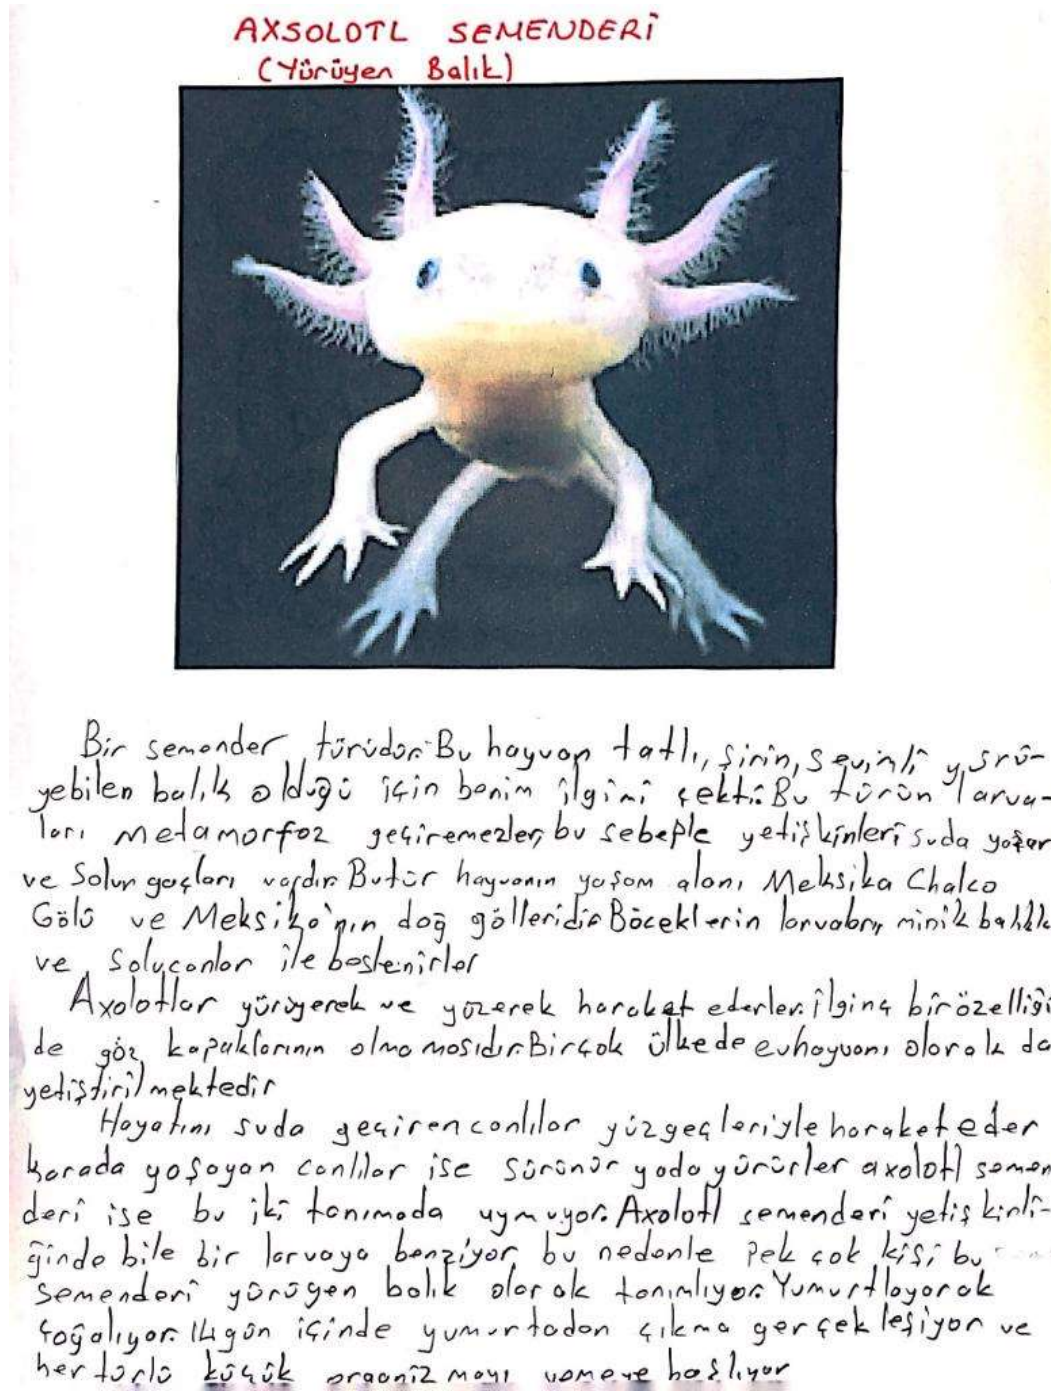 AXSOLOTL SEMENDERİ
(Yürüyen Balık)
Bir semender türüdür. Bu hayvan tatlı, şirin, sevimli yürü-
yebilen balık olduğu için benim ilgimi çekti. Bu türün larva-
ları metamorfoz geçiremezler, bu sebeple yetişkinleri suda yaşar
ve Solungaçları vardır. Bu tür hayvanın yaşam alanı Meksika Chalco
Gölü ve Meksika'nın dağ gölleridir. Böceklerin larvaları, minik balık
ve Solucanlar ile beslenirler
Axolotlar yürüyerek ve yüzerek haraket ederler. İlginç bir özelliği
de göz kapaklarının olmamasıdır. Birçok ülkede evhayvanı olarak da
yetiştirilmektedir
Hayatını suda geçiren canlılar yüzgeçleriyle haraket eder
karada yaşayan canlılar ise sürünür yada yürürler axolotl semen
deri ise bu iki tanımada uymuyor. Axolotl semenderi yetişkinli-
ğinde bile bir larvaya benziyor, bu nedenle pek çok kişi bu
semenderi yürüyen balık olarak tanımlıyor. Yumurtlayarak
çoğalıyor. 14 gün içinde yumurtadan çıkma gerçekleşiyor ve
her türlü küçük organizmayı yemeye başlıyor